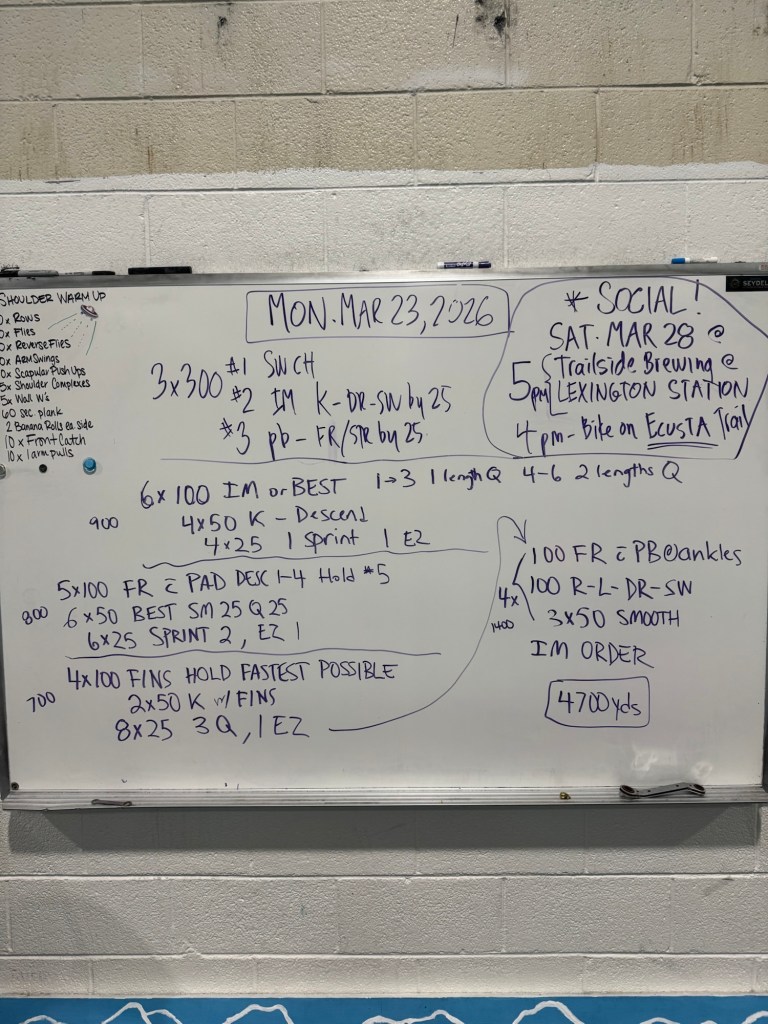 SHOULDER WARM UP
0x Rows
0x Flies
0x Reverse Flies
0x Arm Swings
0x Scapular Push Ups
5x Shoulder Complexes
5x Wall W's
60 sec. plank
2 Banana Rolls ea. side
10x Front Catch
10x 1 arm pulls
MON. MAR 23, 2026
3x300 #1 SWCH
#2 IM K-DR-SW by 25
#3 pb - FR/STR by 25
* SOCIAL!
SAT. MAR 28 @
5pm Trailside Brewing @
LEXINGTON STATION
4pm - Bike on ECUSTA Trail
6x100 IM or BEST 1→3 1 length Q 4-6 2 lengths Q
900 4x50 K - Descend
4x25 1 Sprint 1 EZ
5x100 FR c̄ PAD DESC 1-4 Hold #5
800 6x50 BEST SM 25 Q 25
6x25 SPRINT 2, EZ 1
4x100 FINS HOLD FASTEST POSSIBLE
700 2x50 K w/ FINS
8x25 3Q, 1EZ
100 FR c̄ PB@ankles
4x 100 R-L-DR-SW
1400 3x50 SMOOTH
IM ORDER
4700yds